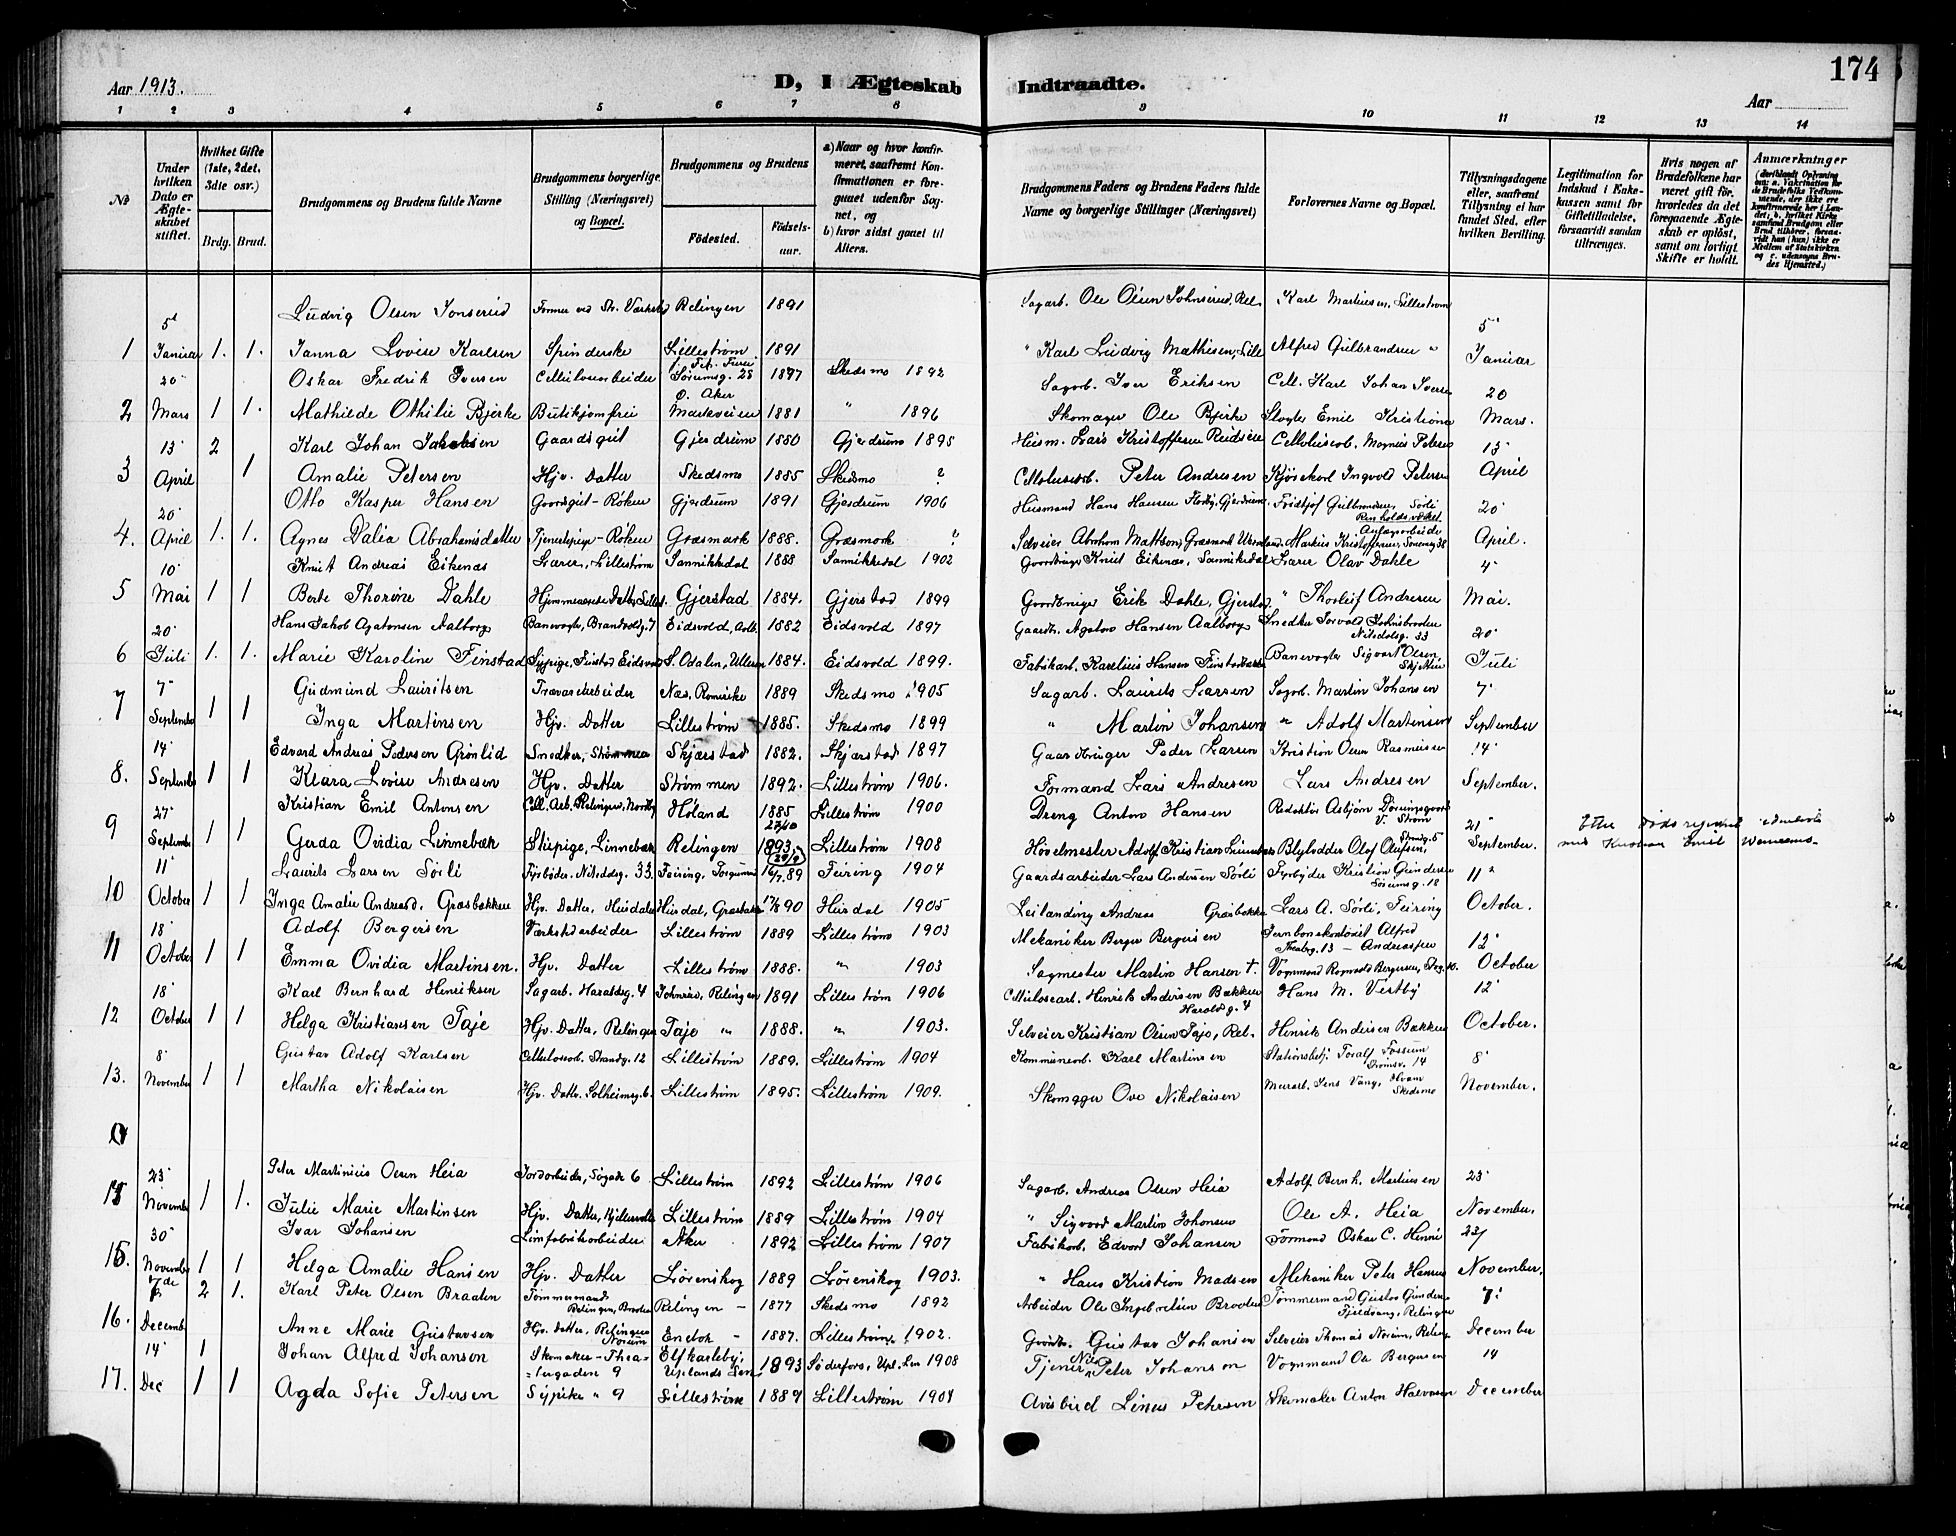 174
Aar 1913.
D, I Ægteskab Indtraadte.
Aar
1 2 3 4 5 6 7 8 9 10 11 12 13 14
No
Under hvilken Dato er Ægteskabet stiftet.
Hvilket Gifte (1ste, 2det, 3die osv.)
Brdg. Brud.
Brudgommens og Brudens fulde Navne
Brudgommens borgerlige Stilling (Næringsvei) og Bopæl.
Brudgommens og Brudens
Fødested. Fødsels-aar.
a) Naar og hvor konfirmeret, saafremt Konfirmationen er foregaaet udenfor Sognet, og
b) hvor sidst gaaet til Alters.
Brudgommens Faders og Brudens Faders fulde Navne og borgerlige Stillinger (Næringsvei)
Forlovernes Navne og Bopæl.
Tillysningsdagene eller, saafremt Tillysning ei har fundet Sted, efter hvilken Bevilling.
Legitimation for Indskud i Enkekassen samt for Giftetilladelse, forsaavidt saadan tiltrænges.
Hvis nogen af Brudefolkene har været gift før, hvorledes da det foregaaende Ægteskab er opløst, samt om lovligt Skifte er holdt.
Anmærkninger
Ludvig Olsen Jonserud Relingen 1891 Sagarb. Ole Olsen Johnserud, Rel. Karl Martinsen, Lillestrøm 5'
1 Januar 1. 1. Janna Lovise Karlsen Spinderske Lillestrøm 1891 " Karl Ludvig Mathisen, Lille Alfred Gulbrandsen " Januar
20' Oskar Fredrik Iversen Celluloarbeider Sørumsg. 28 1877 Skedsmo 1892 Sagarb. Iver Eriksen Cell. Karl Johan Iversen 20
2 Mars 1 1. Mathilde Othilie Bjerke Butikjomfru Ø. Aker Markveien 1881 " 1896 Skomager Ole Bjerke Emil Kristians Mars.
13' 2 Karl Johan Jakobsen Gaardsgut Gjerdrum 1880 Gjerdrum 1895 Husm. Lars Kristoffersen Celloluscarb. Magnus Petersen 13'
3 April 1 Amalie Petersen Hjv. Datter Skedsmo 1885 Skedsmo ? Cellulosearb. Peter Andresen Ingvald Petersen April
20' Otto Kasper Hansen Gaardsgut - Røken Gjerdrum 1891 Gjerdrum 1906 Husmand Hans Hansen Gjerdrum Fridtjof Gulbrandsen, Sørli Renholdsverket 20'
4. April 1. 1. Agnes Dalia Abrahamsdatter Tjenestpige - Røken Græsmark 1888. Græsmark ? Selveier Abraham Mattson, Græsmark Anlægsarbeide Markus Kristoffersen, April.
10' Knut Andreas Eikenæs Lærer, Lillestrøm Sannikedal 1888 Sannikedal 1902 Gaardbruger Knut Eikenæs, Sannikedal Lærer Olav Dahle 4'
5 Mai 1 1 Berte Thorine Dahle Hjemmeværende Datter, Gjerstad 1884. Gjerstad 1899 Gaardbruger Erik Dahle, Gjerstad. " Thorleif Andresen Mai.
20' Hans Jakob Agatonsen Aalborg Banevogter, Brandvoldg. 7 Eidsvold, 1882 Eidsvold 1897 Gaardbr. Agaton Hansen Aalborg Snedker Torvald Johnsbraaten Nitedalsg. 33 20'
6 Juli 1. 1. Marie Karoline Finstad Sypige, Finstad Eidsvold S. Odalen, Ullern 1884. Eidsvold 1899. Fabrikarb. Karelius Hansen Finstad Banevogter Sigvart Olsen Skjetten Juli
7' Gudmund Lauritsen Trævarearbeider Næs, Romerike 1889 Skedsmo 1905 Sagarb. Laurits Larsen Sagarb. Martin Johansen 7'
7 September 1 1 Inga Martinsen Hjv. Datter Lillestrøm 1885. Skedsmo 1899 " Martin Johansen " Adolf Martinsen September
14' Edvard Andreas Pedersen Grønlid Snedker, Strømmen Skjærstad 1882. Skjærstad 1897 Gaardbruger Peder Larsen Kristian Olsen Rasmussen 14'
8. September 1 1 Klara Lovise Andresen Hjv. Datter Strømmen 1892. Lillestrøm 1906. Formand Lars Andresen Lars Andresen September.
27' Kristian Emil Antonsen Cell. Arb. Relingen, Nordby Høland 1885 27/10 Lillestrøm 1900 Dreng Anton Hansen Redaktør Asbjørn V. Strøm 21'
9 September 1 1 Gerda Ovidia Linnebæk Skipige, Linnebæk Relingen 1893 (20/9) Lillestrøm 1908 Høvelmester Adolf Kristian Linnebæk Blylodder Olaf Olufsen, Strandg. 5 September.
11' Laurits Larsen Sørli Fyrbøder, Nitedalsg. 33. Feiring, 16/7 89 Feiring 1904 Gaardsarbeider Lars Andersen Sørli Fyrbøder Kristian Gundersen Sørumsg. 18 11'
10 October 1 1 Inga Amalie Andreasd. Græsbakken Hjv. Datter, Hurdalen Hurdal, Græsbakken 17/8 90 Hurdal 1905 Leilanding Andreas Græsbakken Lars A. Sørli, Feiring October.
18' Adolf Bergersen Værkstedarbeider Lillestrøm 1889 Lillestrøm 1903 Mekaniker Berger Bergersen Alfred Theaterg. 13 - Andreassen 12'
11 October 1 1 Emma Ovidia Martinsen. Hjv. Datter Lillestrøm 1888. " 1903 Sagmester Martin Hansen †. Vognmand Ragnvald Bergersen, October
18' Karl Bernhard Henriksen Sagarb. Haraldsg. 4 Johnsrud, Relingen 1891 Lillestrøm 1906 Cellulosearb. Henrik Andersen Bakken Haraldsg. 4 Hans M. Vestby 12'
12 October 1 1 Helga Kristiansen Taje Hjv. Datter, Relingen Taje " 1888. " 1903. Selveier Kristian Olsen Taje, Rel. Henrik Andersen Bakken October.
8' Gustav Adolf Karlsen Cellulosearb. Strandg. 12 Lillestrøm 1889. Lillestrøm 1904 Kommunearb. Karl Martinsen Stationsbetj. Toralf Fossum 14 8'
13. November 1 1 Martha Nikolaisen Hjv. Datter. Solheimsg. 6. Lillestrøm 1895. Lillestrøm 1909. Skomager Ove Nikolaisen Murarb. Jens Vang, Hvam Skedsmo November.
23' Peter Martinius Olsen Heia Jordarbeider, Søgade 6 Lillestrøm 1892 Lillestrøm 1906 Sagarb. Andreas Olsen Heia Adolf Bernh. Martinsen 23'
November 1 1. Julie Marie Martinsen Hjv. Datter, Lillestrøm 1889 Lillestrøm 1904 " Sigvard Martin Johansen Ole A. Heia November.
30' Ivar Johansen Limfabrikarbeider Aker 1892 Lillestrøm 1907 Fabrikarb. Edvard Johansen Formand Oskar C. Henni 23/
15. November 1 1 Helga Amalie Hansen Hjv. Datter Lørenskog 1889 Lørenskog 1903. " Hans Kristian Madsen Mekaniker Peter Hansen November.
7de 2 1. Karl Peter Olsen Braaten Tømmermand Relingen, Braaten Relingen - 1877 Skedsmo 1892 Arbeider Ole Ingebretsen Braaten Tømmermand Gustav Gundersen Fjeldvang, Relingen 7'
16. Decemb. Anne Marie Gustavsen Hjv. Datter, Relingen Norum Enebak - 1887. Lillestrøm. 1902. Gaardbr. Gustav Johansen Selveier Thomas Norum, Relingen December
14' 1 Johan Alfred Johanson Skomaker - Theatergaden 9 Elfkarleby, Uplands Len 1893 Søderfors, Upl. Len 1908 Tjener Nils Peter Johanson Vognmand Ole Bergersen 14
17. Dec 1 1 Agda Sofie Petersen Sypike " 9 Lillestrøm 1889 Lillestrøm 1904 Avisbud Linus Pehrson Skomaker Anton Halvorsen December